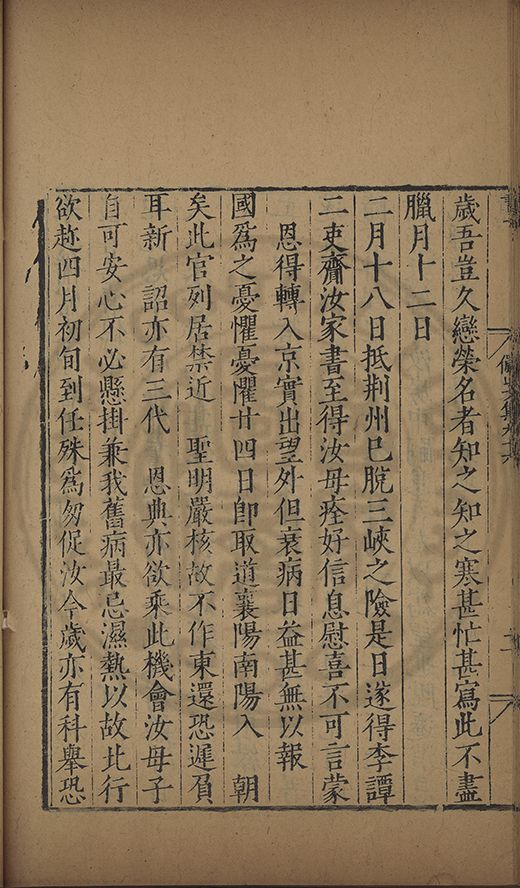 歲吾豈久戀榮名者知之知之寒甚忙甚寫此不盡
臘月十二日
二月十八日抵荆州已脫三峽之險是日遂得李譚
二吏齎汝家書至得汝母痊好信息慰喜不可言蒙
恩得轉入京實出望外但衰病日益甚無以報
國爲之憂懼憂懼廿四日卽取道襄陽南陽入 朝
矣此官列居禁近 聖明嚴核故不作東還恐遲負
耳新 詔亦有三代 恩典亦欲乘此機會汝母子
自可安心不必懸掛兼我舊病最忌濕熱以故此行
欲趂四月初旬到任殊爲匆促汝今歲亦有科舉恐